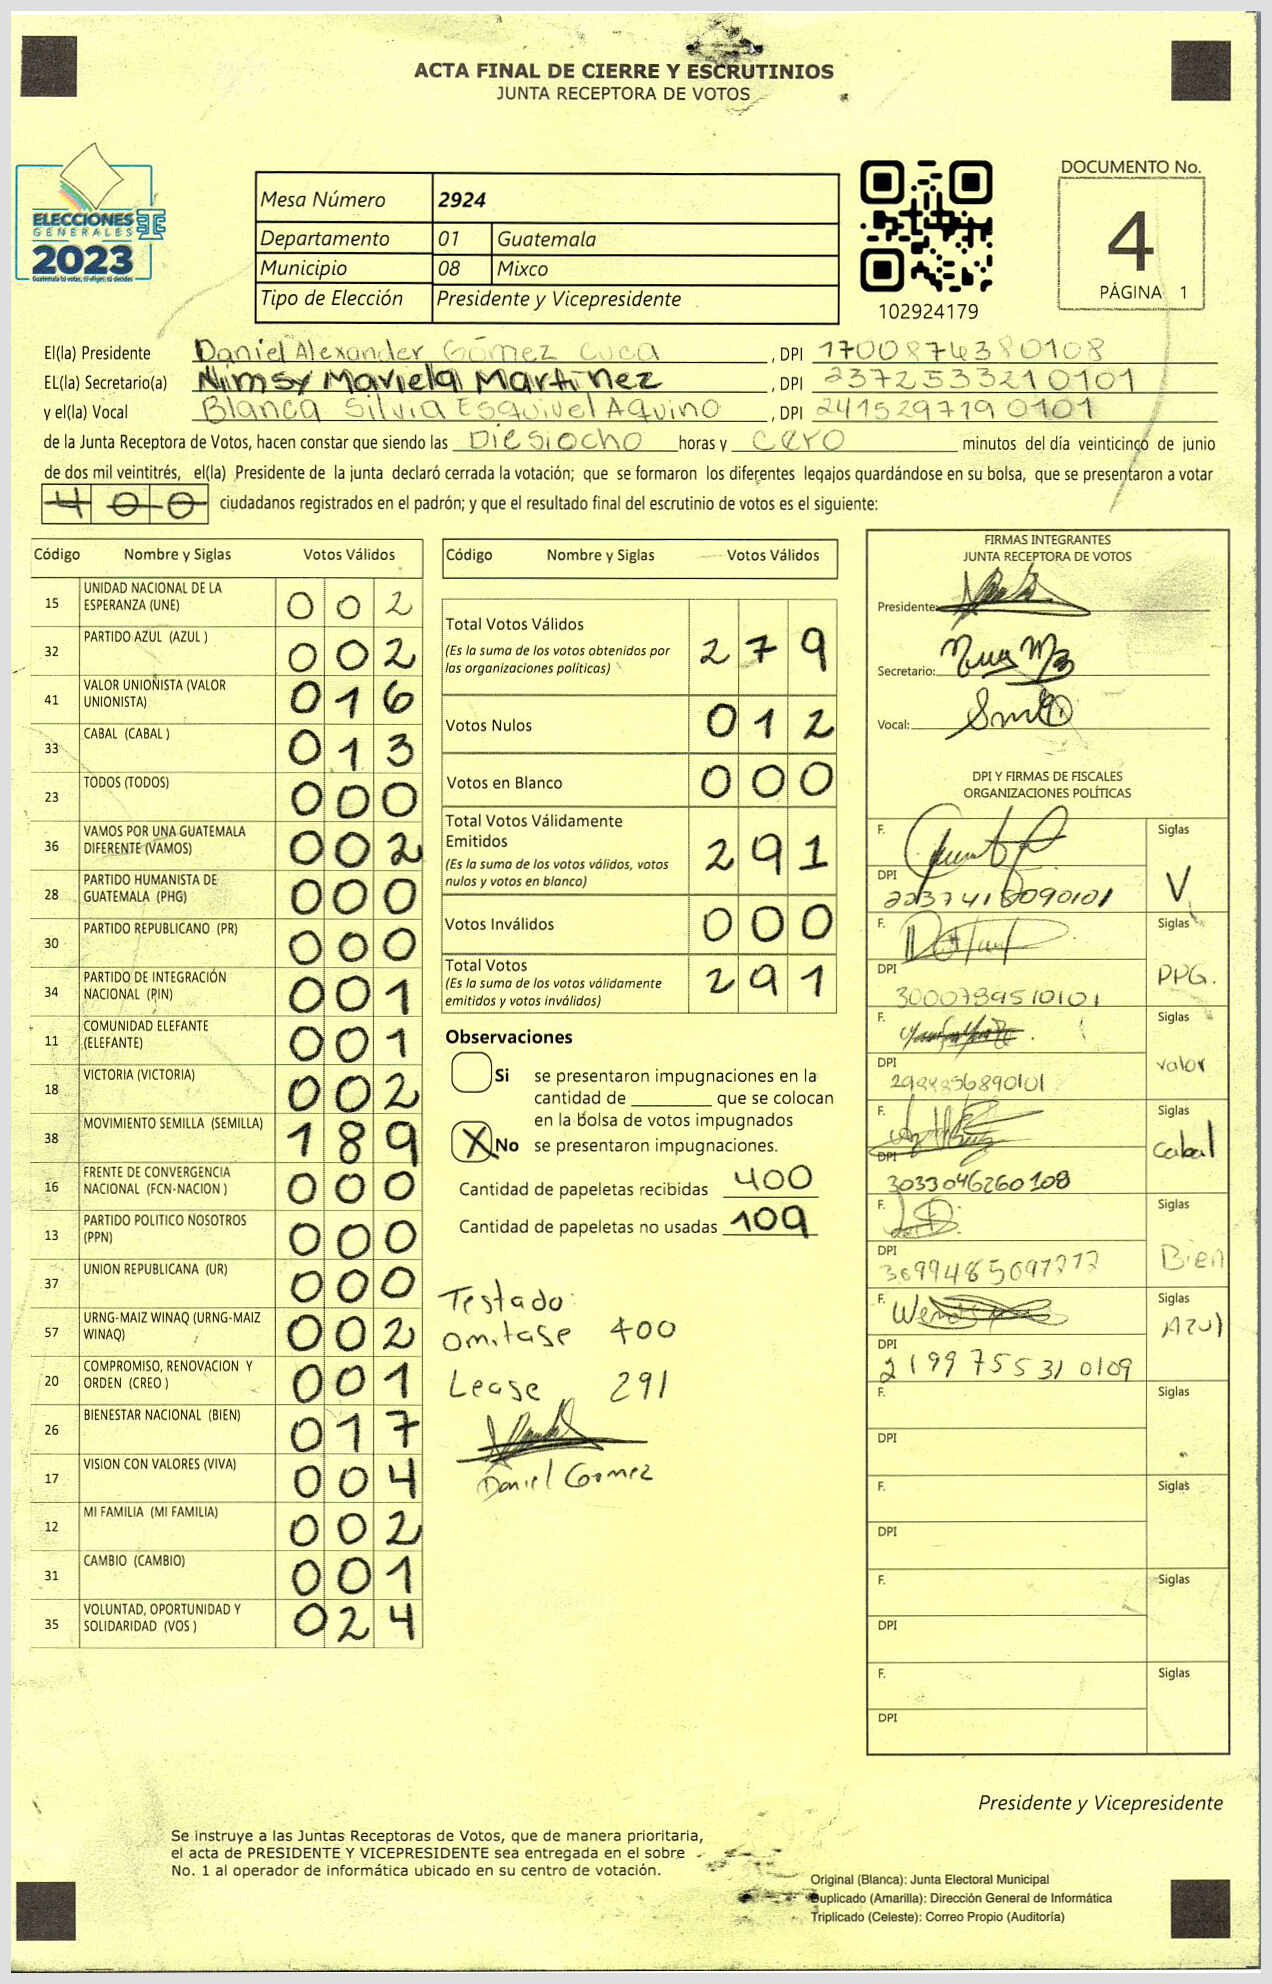 ACTA FINAL DE CIERRE Y ESCRUTINIOS
JUNTA RECEPTORA DE VOTOS
ELECCIONES
GENERALES
2023
Guatemala tú votas, tú eliges, tú decides
Mesa Número 2924
Departamento 01 Guatemala
Municipio 08 Mixco
Tipo de Elección Presidente y Vicepresidente
102924179
DOCUMENTO No.
4
PÁGINA 1
El(la) Presidente Daniel Alexander Gómez Cuca, DPI 1700874380108
EL(la) Secretario(a) Nimsy Mariela Martínez, DPI 2372533210101
y el(la) Vocal Blanca Silvia Esquivel Aquino, DPI 2415297190101
de la Junta Receptora de Votos, hacen constar que siendo las Diesiocho horas y cero minutos del día veinticinco de junio
de dos mil veintitrés, el(la) Presidente de la junta declaró cerrada la votación; que se formaron los diferentes legajos guardándose en su bolsa, que se presentaron a votar
400 ciudadanos registrados en el padrón; y que el resultado final del escrutinio de votos es el siguiente:
Código Nombre y Siglas Votos Válidos
15 UNIDAD NACIONAL DE LA ESPERANZA (UNE) 0 0 2
32 PARTIDO AZUL (AZUL ) 0 0 2
41 VALOR UNIONISTA (VALOR UNIONISTA) 0 1 6
33 CABAL (CABAL ) 0 1 3
23 TODOS (TODOS) 0 0 0
36 VAMOS POR UNA GUATEMALA DIFERENTE (VAMOS) 0 0 2
28 PARTIDO HUMANISTA DE GUATEMALA (PHG) 0 0 0
30 PARTIDO REPUBLICANO (PR) 0 0 0
34 PARTIDO DE INTEGRACIÓN NACIONAL (PIN) 0 0 1
11 COMUNIDAD ELEFANTE (ELEFANTE) 0 0 1
18 VICTORIA (VICTORIA) 0 0 2
38 MOVIMIENTO SEMILLA (SEMILLA) 1 8 9
16 FRENTE DE CONVERGENCIA NACIONAL (FCN-NACION ) 0 0 0
13 PARTIDO POLITICO NOSOTROS (PPN) 0 0 0
37 UNION REPUBLICANA (UR) 0 0 0
57 URNG-MAIZ WINAQ (URNG-MAIZ WINAQ) 0 0 2
20 COMPROMISO, RENOVACION Y ORDEN (CREO ) 0 0 1
26 BIENESTAR NACIONAL (BIEN) 0 1 7
17 VISION CON VALORES (VIVA) 0 0 4
12 MI FAMILIA (MI FAMILIA) 0 0 2
31 CAMBIO (CAMBIO) 0 0 1
35 VOLUNTAD, OPORTUNIDAD Y SOLIDARIDAD (VOS ) 0 2 4
Código Nombre y Siglas Votos Válidos
Total Votos Válidos 2 7 9
(Es la suma de los votos obtenidos por
las organizaciones políticas)
Votos Nulos 0 1 2
Votos en Blanco 0 0 0
Total Votos Válidamente
Emitidos 2 9 1
(Es la suma de los votos válidos, votos
nulos y votos en blanco)
Votos Inválidos 0 0 0
Total Votos 2 9 1
(Es la suma de los votos válidamente
emitidos y votos inválidos)
Observaciones
Si se presentaron impugnaciones en la
cantidad de ________ que se colocan
en la bolsa de votos impugnados
X No se presentaron impugnaciones.
Cantidad de papeletas recibidas 400
Cantidad de papeletas no usadas 109
Testado:
omitase 400
Lease 291
Daniel Gomez
FIRMAS INTEGRANTES
JUNTA RECEPTORA DE VOTOS
Presidente:
Secretario:
Vocal:
DPI Y FIRMAS DE FISCALES
ORGANIZACIONES POLÍTICAS
F. Siglas
DPI 2237418090101 V
F. Siglas
DPI 3000789510101 PPG.
F. Siglas
DPI valor
F. Siglas
DPI 3033046260108 Cabal
F. Siglas
DPI Bien
F. Siglas
DPI 2199755310109 AZUl
F. Siglas
DPI
F. Siglas
DPI
F. Siglas
DPI
F. Siglas
DPI
Presidente y Vicepresidente
Se instruye a las Juntas Receptoras de Votos, que de manera prioritaria,
el acta de PRESIDENTE Y VICEPRESIDENTE sea entregada en el sobre
No. 1 al operador de informática ubicado en su centro de votación.
Original (Blanca): Junta Electoral Municipal
Duplicado (Amarilla): Dirección General de Informática
Triplicado (Celeste): Correo Propio (Auditoría)